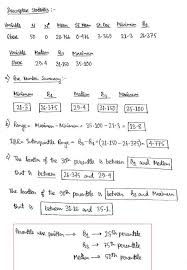 Descriptive Statistics :-
Variable N N* Mean SE Mean St Dev Minimum Q1
50 0 3.360 21.3 26.375
Variable Median Q3 Maximum
29.4 31.150 35.100
a) Five Number Summary :-
Minimum Q1 Median Q3 Maximum
21.3 26.375 29.4 31.150 35.100
b) Range = Maximum - Minimum = 35.100 - 21.3 =
IQR = Interquartile Range = Q3 - Q1 = = 4.775
c) The location of the 30th percentile is between Q1 and Median
that is between 26.375 and 29.4
The location of the 90th percentile is between Q3 and Maximum
that is between 31.15 and 35.1.
Percentile wise position → Q1 → 25th percentile
Q3 → 75th percentile
Median → 50th percentile